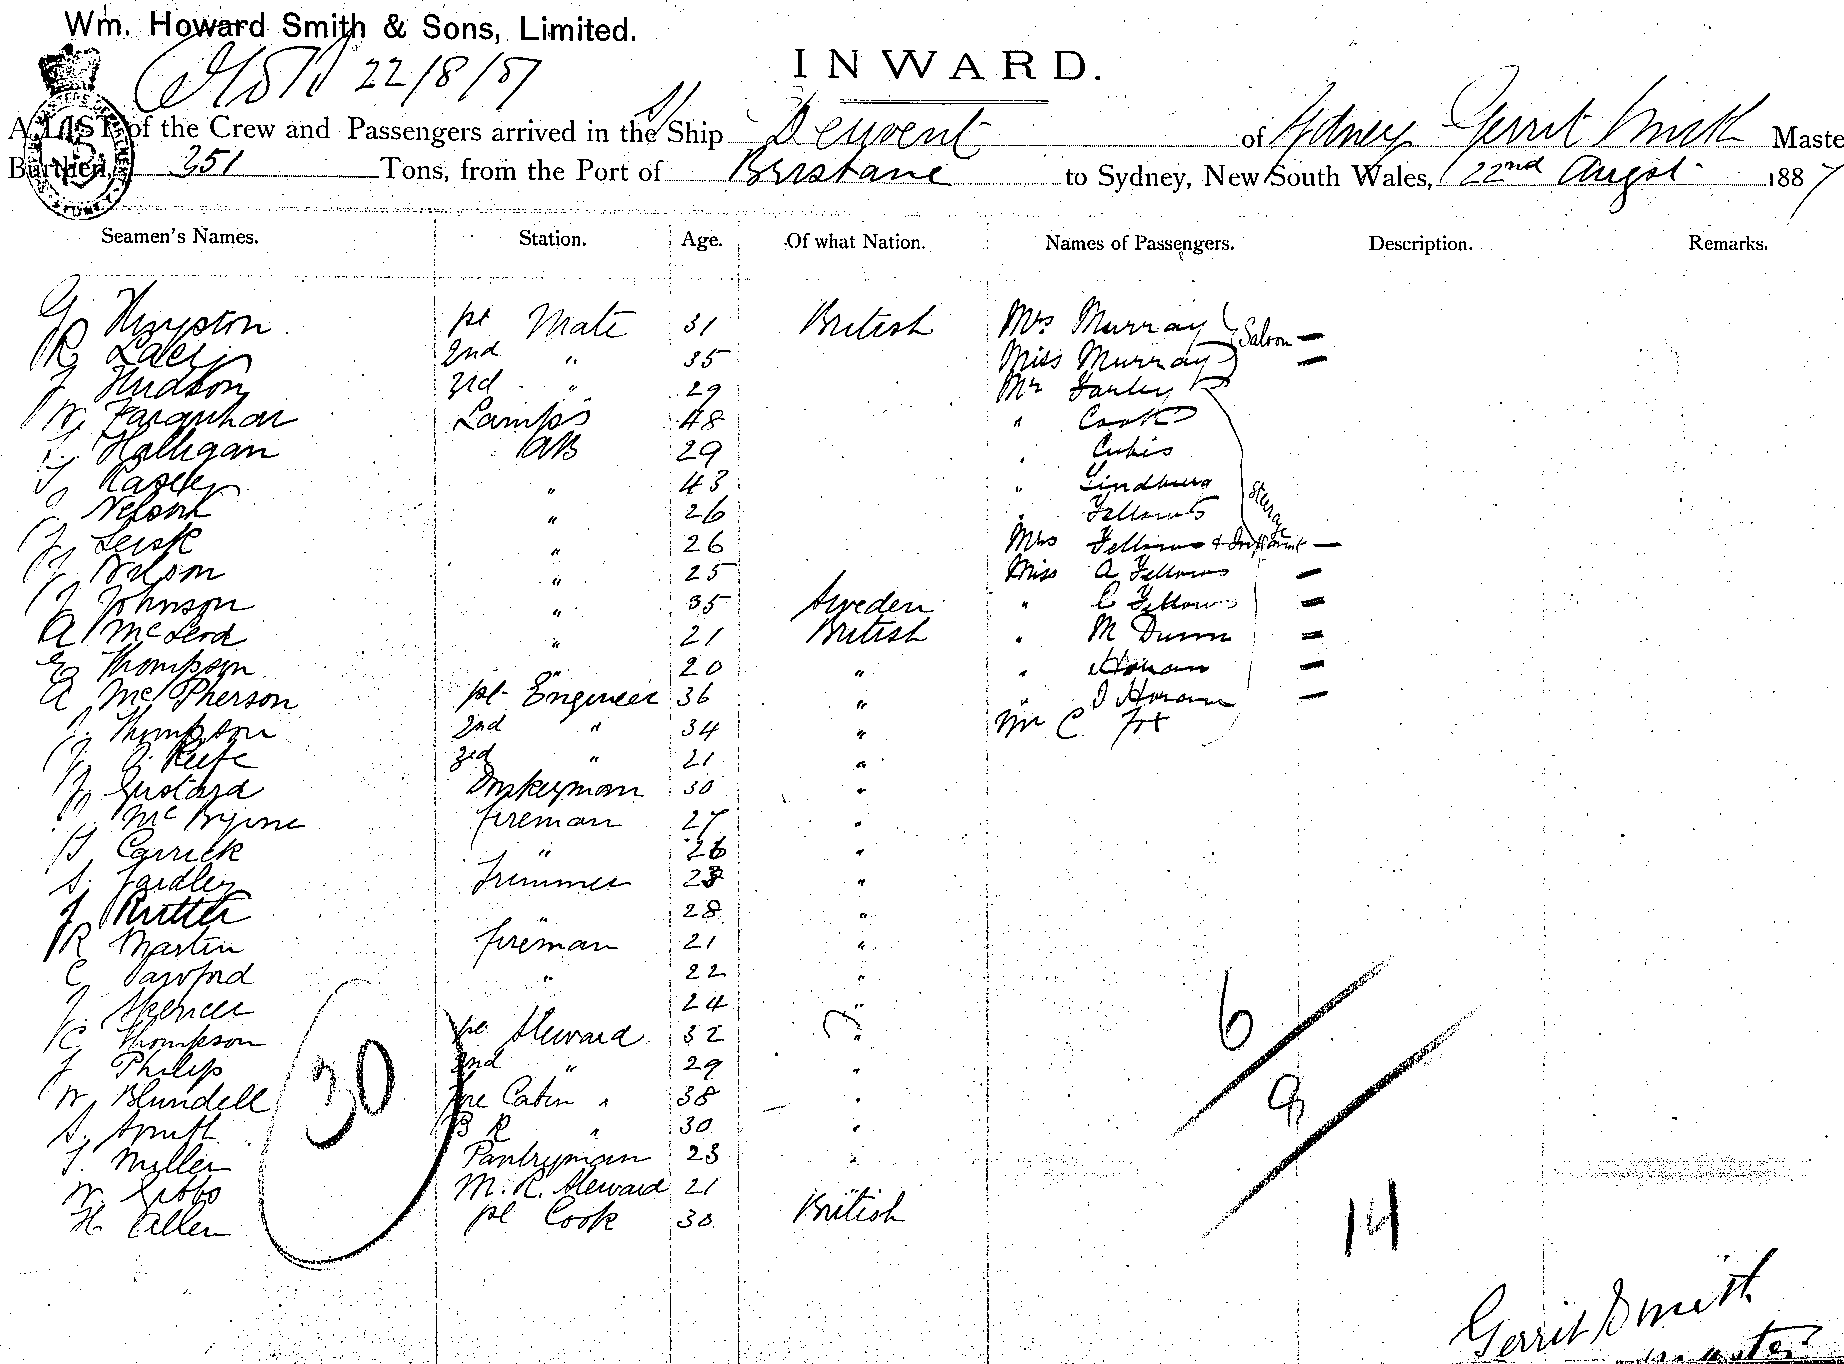 Wm. Howard Smith & Sons, Limited.
22/8/87
INWARD.
A LIST of the Crew and Passengers arrived in the S/ Ship Derwent of Sydney Gerrit Smith Maste
Burthen, 351 Tons, from the Port of Brisbane to Sydney, New South Wales, 22nd Augst 1887
Seamen's Names. Station. Age. Of what Nation. Names of Passengers. Description. Remarks.
G Kingston pt Mate 31 British Mrs Murray Saloon —
R 2nd " 35 Miss Murray —
J Hudson 3rd " 29 Mr Farley
W Farquhar Lamps 48 " Cook
Halligan AB 29 "
T " 43 "
Nelson " 26 " Fellows
J Leisk " 26 Mrs Fellows & Infant —
J Wilson " 25 Miss A Fellows —
J Johnson " 35 Sweden " C Fellows —
A McLeod " 21 British " M Dunn —
G Thompson " 20 " " Horan —
A McPherson pt Engineer 36 " " J Horan —
J. Thompson 2nd " 34 " Mr C Fox
J. O'Keefe 3rd " 21 "
Gustard Donkeyman 30 "
McByrne fireman 27 "
H Carrick " 26 "
S. Yardley Trimmer 23 "
J Rutter " 28 "
R Martin fireman 21 "
C " 22 "
J. Spencer 24 "
C Thompson pt Steward 32 "
J Philip 2nd " 29 "
W. Blundell Fore Cabin " 38 "
S. Smith B R " 30 "
T. Miller Pantryman 23 "
W. Gibbs M. R. Steward 21
H Allen pt Cook 30 British
30
Steerage
6
8
14
Gerrit Smith
Master